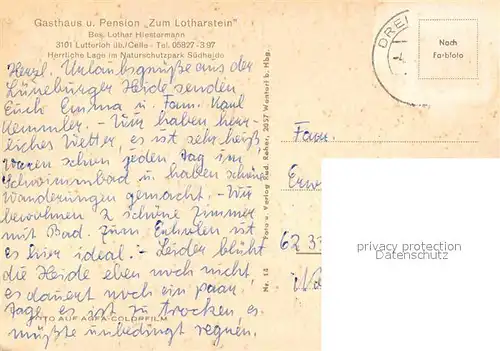 Gasthaus u. Pension „Zum Lotharstein"
Bes. Lothar Hiestermann
3101 Lutterloh üb./Celle - Tel. 05827-397
Herrliche Lage im Naturschutzpark Südheide
Herzl. Urlaubsgrüße aus der
Lüneburger Heide senden
Euch Emma u. Fam. Karl
Kemmler. - Wir haben herr-
liches Wetter, es ist sehr heiß
waren schon jeden Tag im
Schwimmbad u. haben schöne
Wanderungen gemacht. - Wir
bewohnen 2 schöne Zimmer
mit Bad. Zum Erholen ist
es hier ideal. - Leider blüht
die Heide eben noch nicht
es dauert noch ein paar
Tage es ist zu trocken es
müßte unbedingt regnen.
FOTO AUF AGFA-COLORFILM
Nr. 14 Foto u. Verlag Rud. Reher, 2057 Wentorf b. Hbg.
DREI
Nach
Farbfoto
Fam.
Erw
62 33
privacy protection
Oldthing.de